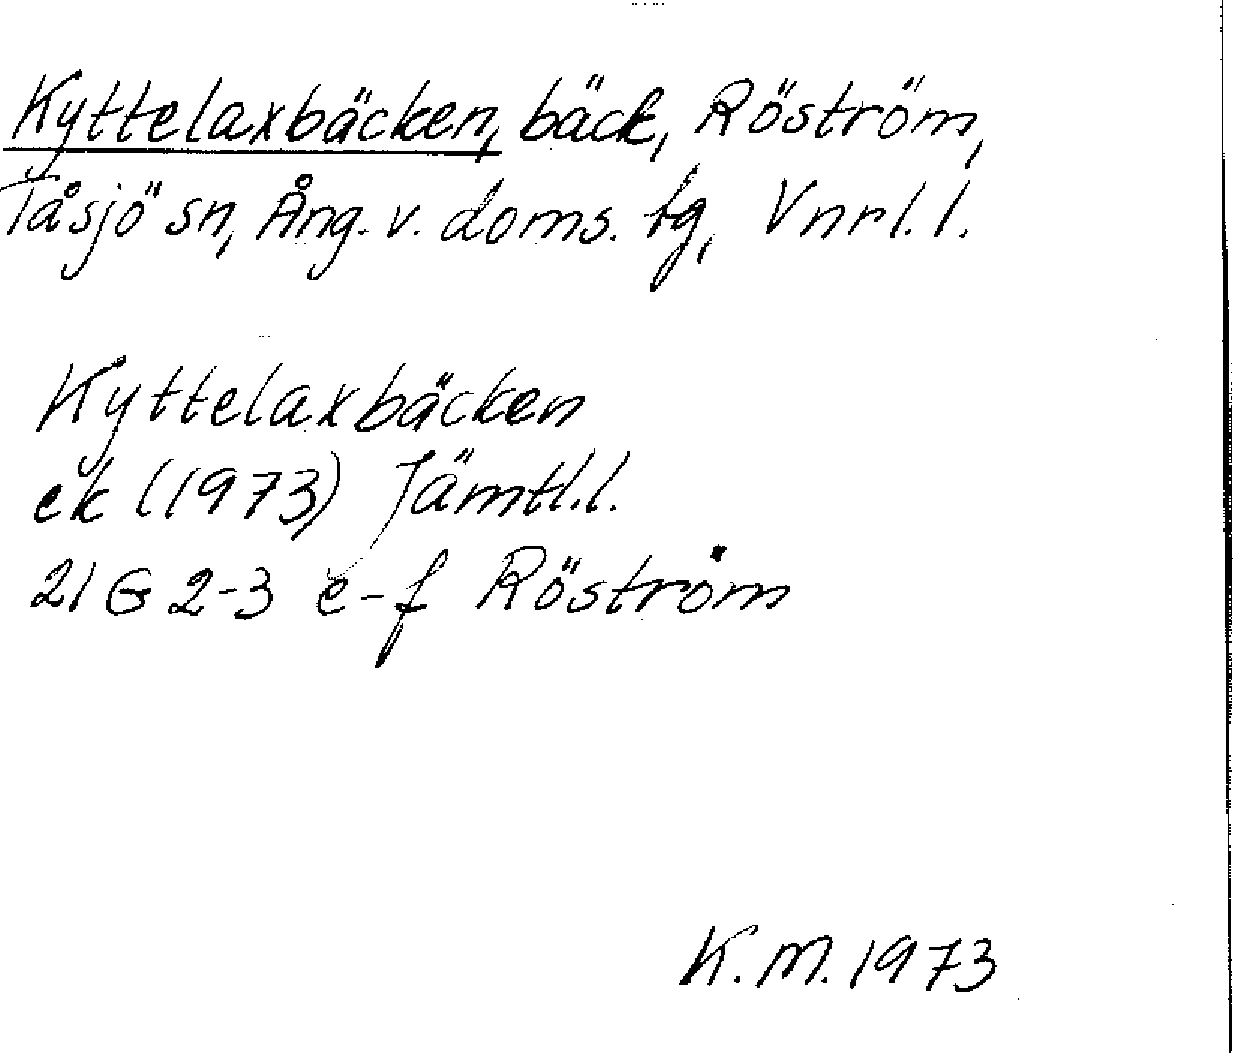 Kyttelaxbäcken, bäck, Röström,
Tåsjö sn, Ång. v. doms. tg, Vnrl. l.
Kyttelaxbäcken
ek (1973) Jämtl. l.
21 G 2-3 e-f Röström
K. M. 1973